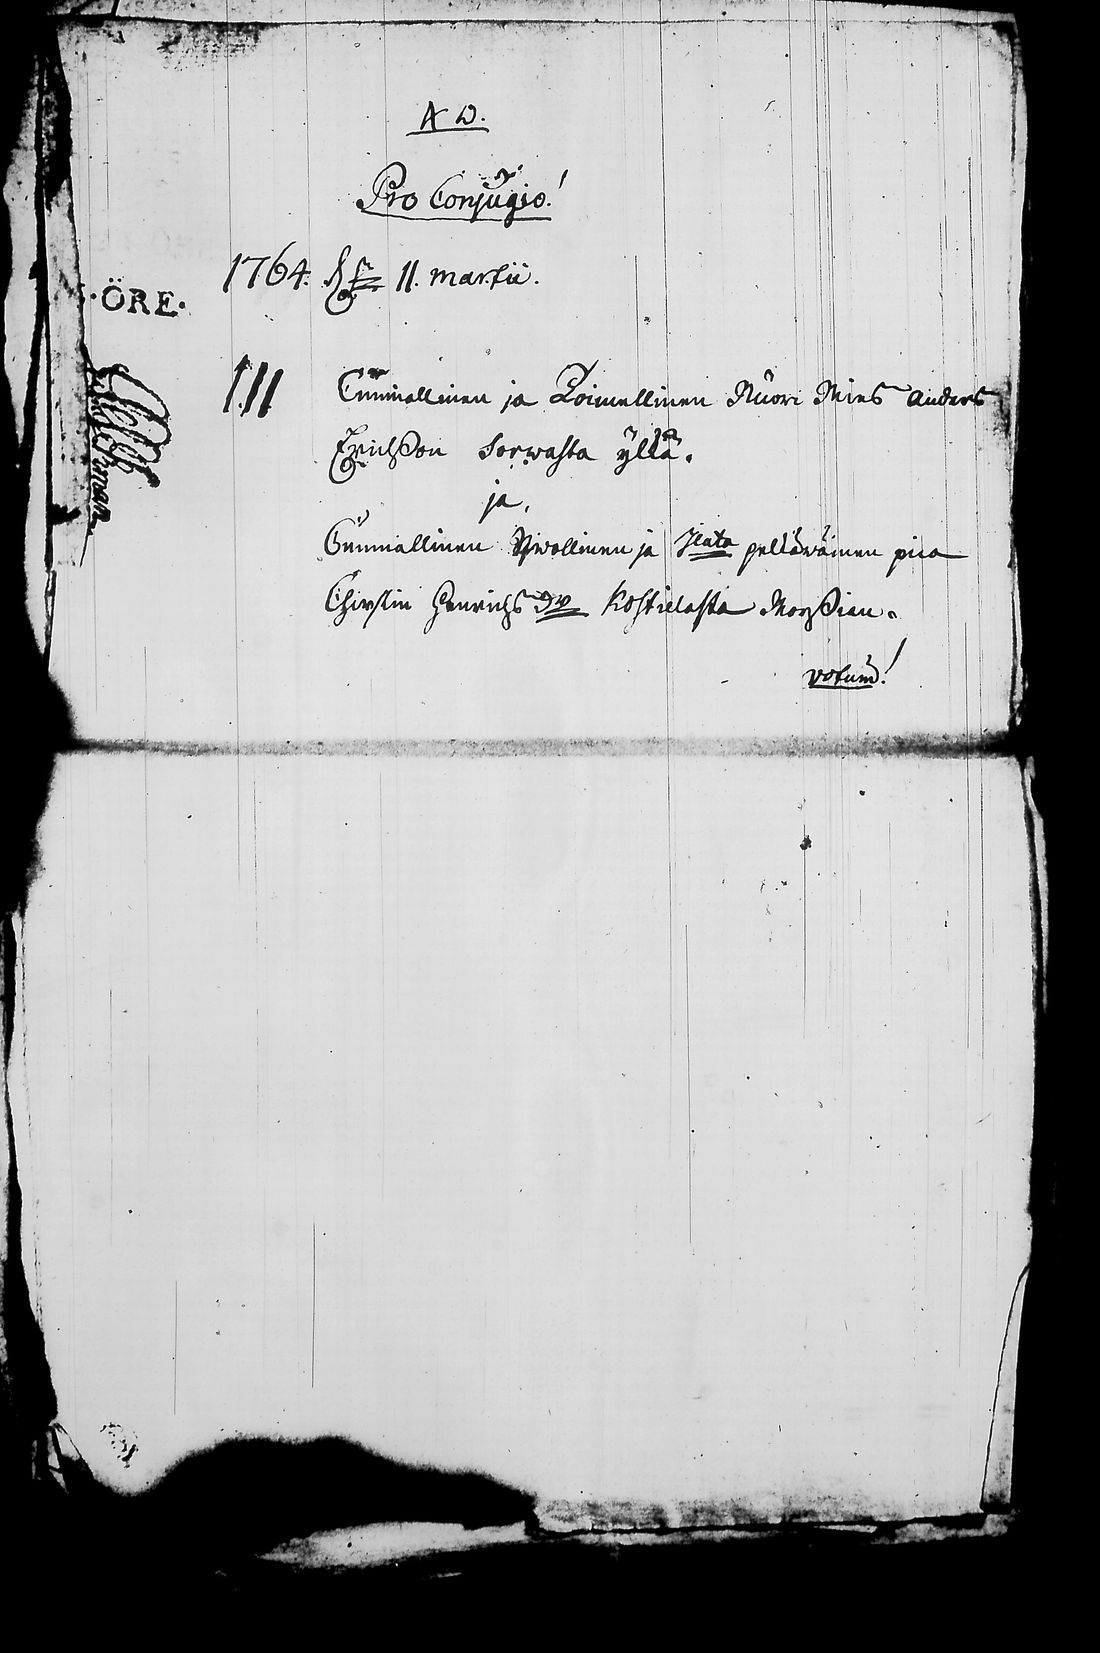 A D.
Pro Conjugio!
1764. d. 11. martii.
·ÖRE·
I.II Cunniallinen ja Toimellinen Nuori Mies Anders
Erichson Sorwasta yllä.
ja,
Cunniallinen Siwollinen ja Jlata pelläwäinen pica
Chirstin Henrichs Dr Kostilasta Morsian.
votum!